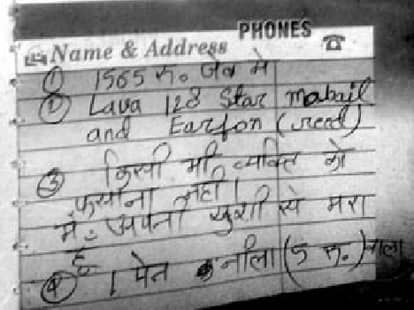 PHONES
Name & Address
① 1565 रु. जेब मे
② Lava 128 Star mabail
and Earfon (
③ किसी भी व्यक्ति को
फसाना नही।
मैं अपनी खुशी से मरा
हूँ
④ 1 पेन नीला (5 रु.) वाला